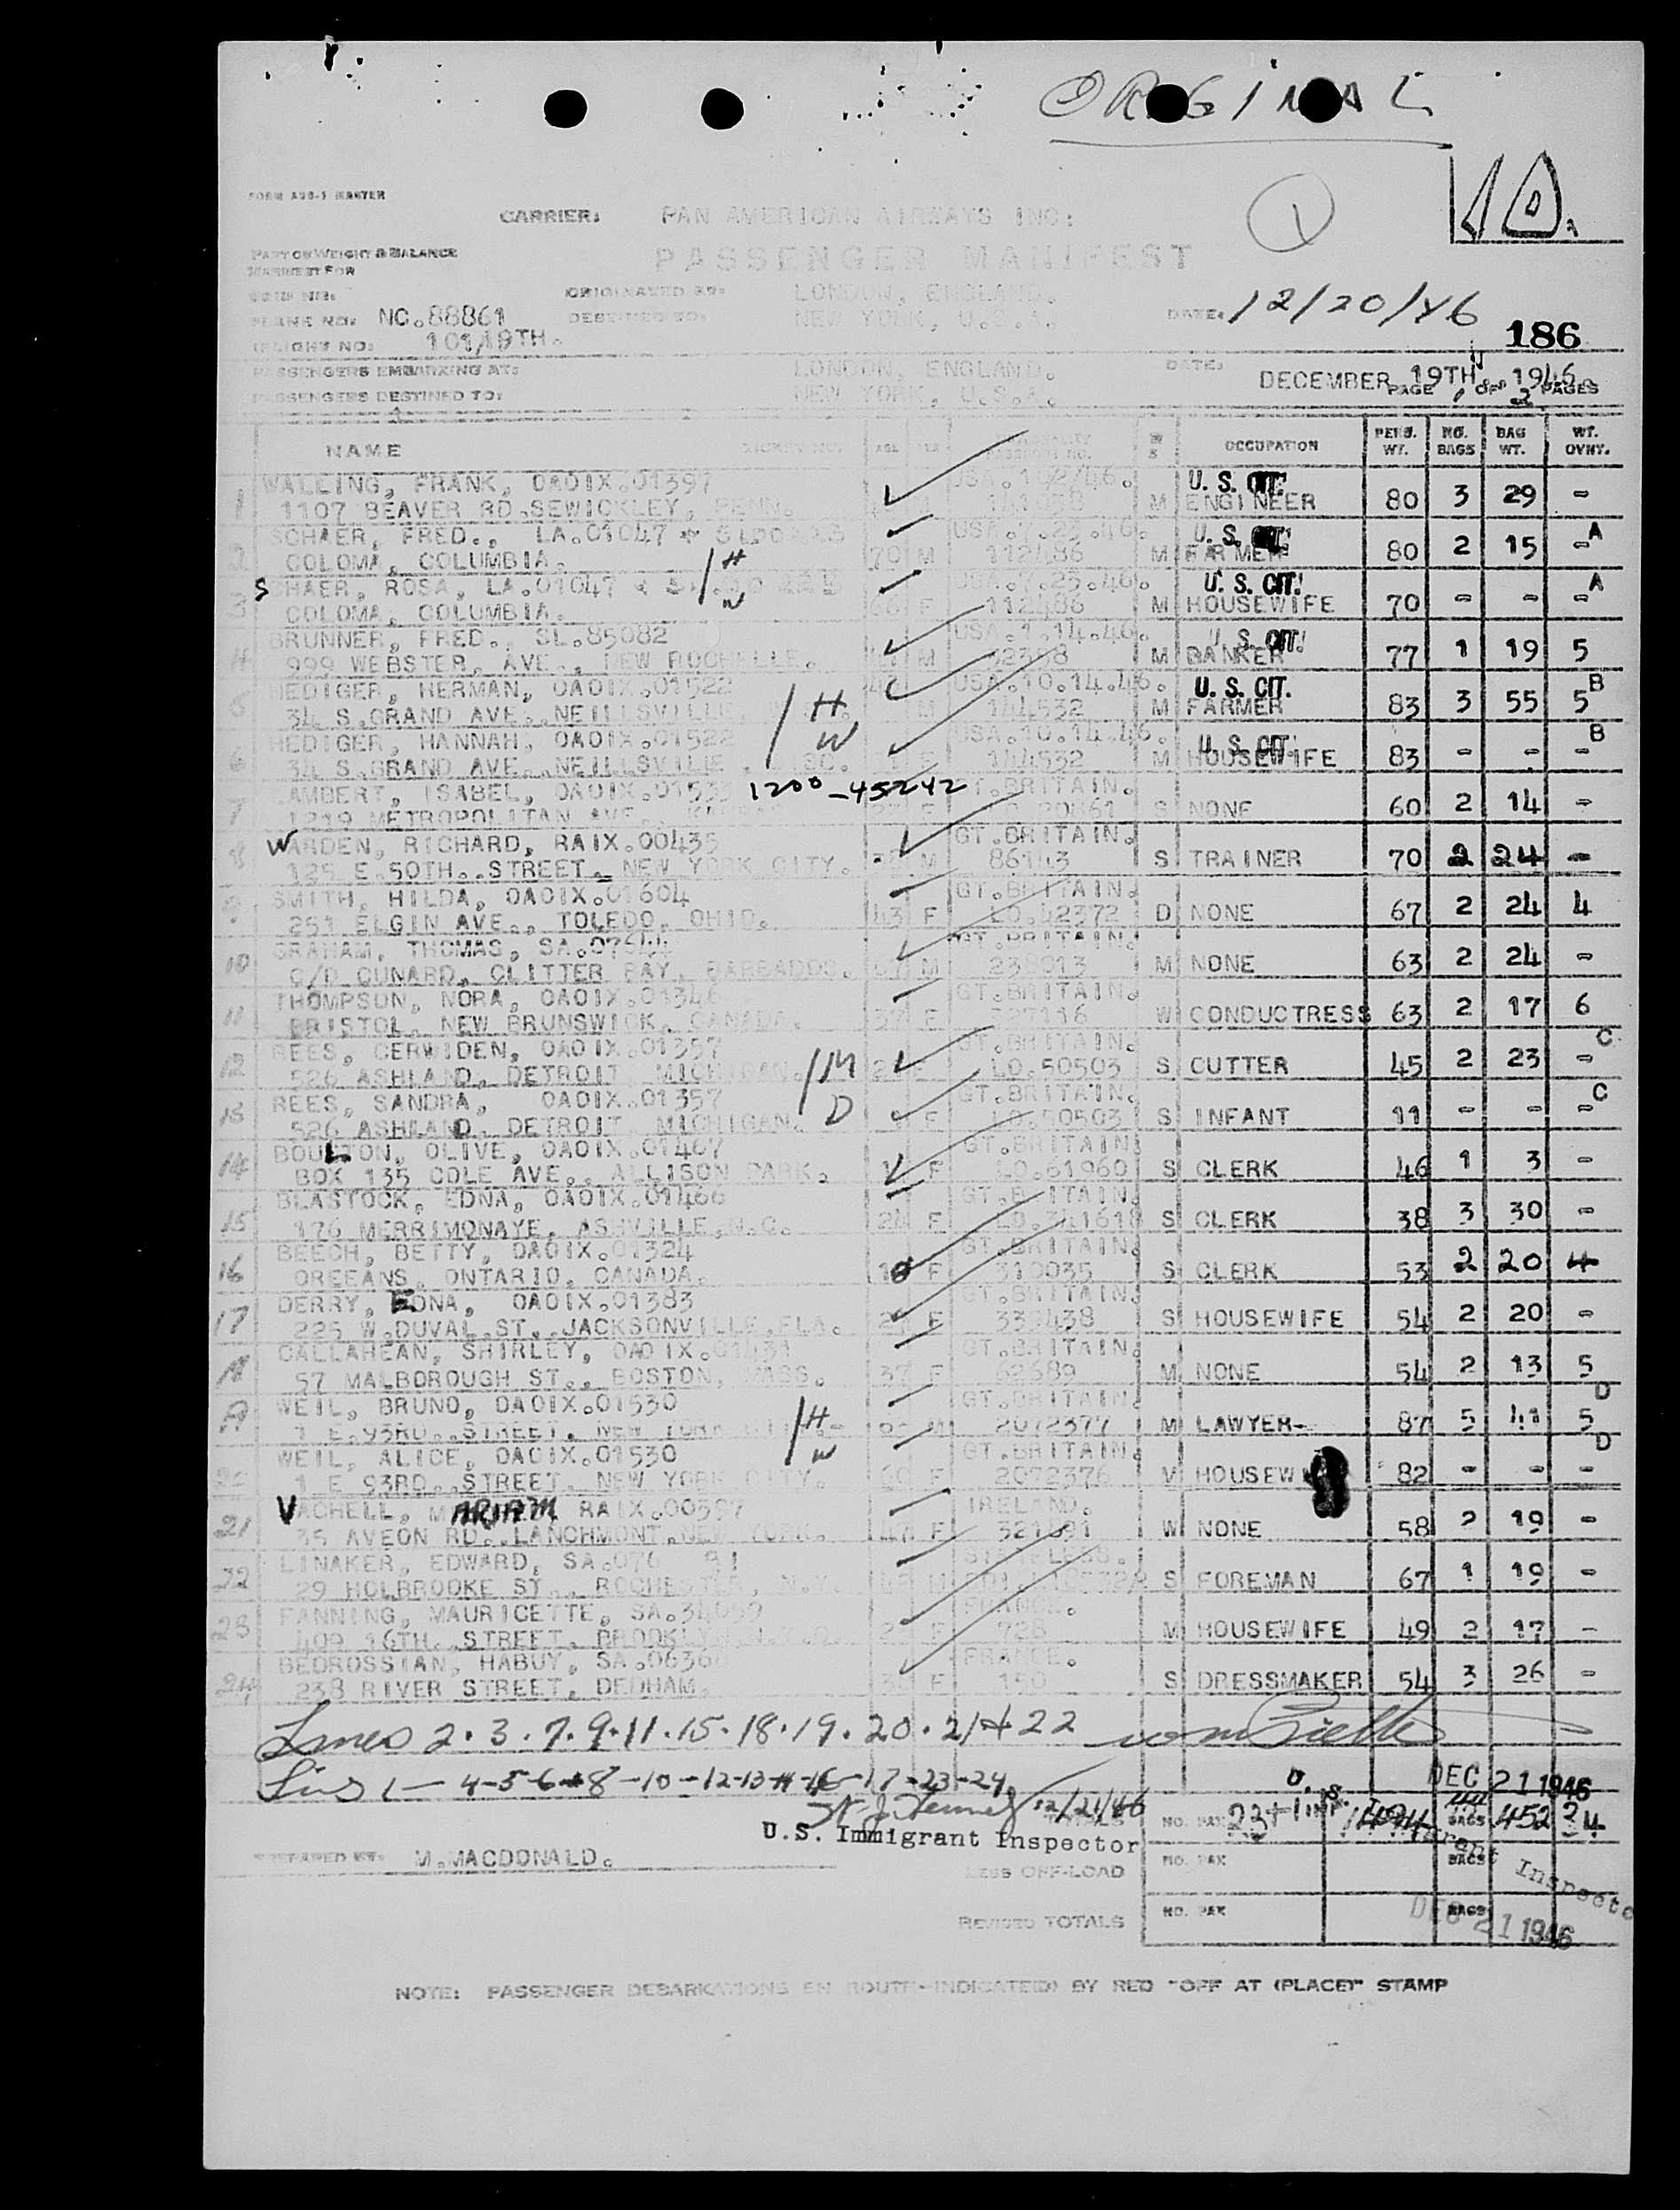 ORIGINAL
FORM ADS-1 MASTER
CARRIER: PAN AMERICAN AIRWAYS INC:
1
10.
PART OF WEIGHT & BALANCE
MANIFEST FOR
PASSENGER MANIFEST
ORIGINATED AT: LONDON, ENGLAND.
PLANE NO: NC.88861 DESTINED TO: NEW YORK, U.S.A. DATE: 12/20/46
186
FLIGHT NO: 101/19TH.
PASSENGERS EMBARKING AT: LONDON, ENGLAND. DATE: DECEMBER 19TH, 1946.
PASSENGERS DESTINED TO: NEW YORK, U.S.A. PAGE 1 OF 2 PAGES
NAME TICKET NO. AGE SEX OCCUPATION PERS. WT. NO. BAGS BAG WT. WT. OVHT.
1 WALLING, FRANK, OAOIX.01397 USA.1.2/46. U. S. CIT.
1107 BEAVER RD.SEWICKLEY, PENN. M ENGINEER 80 3 29 -
2 SCHAER, FRED., LA.01047 USA.7.23.46. U. S. CIT. A
COLOMA, COLUMBIA. 70 M 112486 M FARMER 80 2 15 -
H
W
3 SHAER, ROSA, LA.01047 USA.7.23.46. U. S. CIT. A
COLOMA, COLUMBIA. F 112486 M HOUSEWIFE 70 - - -
4 BRUNNER, FRED., SL.85082 USA.1.14.46. U. S. CIT.
999 WEBSTER, AVE., NEW ROCHELLE. M M BANKER 77 1 19 5
5 HEDIGER, HERMAN, OAOIX.01522 USA.10.14.46. U. S. CIT. B
34 S.GRAND AVE..NEILLSVILLE M 144532 M FARMER 83 3 55 5
H
W
6 HEDIGER, HANNAH, OAOIX.01522 USA.10.14.46. U. S. CIT. B
34 S.GRAND AVE..NEILLSVILLE F 144532 M HOUSEWIFE 83 - - -
7 LAMBERT, ISABEL, OAOIX. 1200-45242 GT.BRITAIN.
1219 METROPOLITAN AVE. F S NONE 60 2 14 -
8 WARDEN, RICHARD, RAIX.00435 GT.BRITAIN.
125 E.50TH..STREET. NEW YORK CITY. M 86143 S TRAINER 70 2 24 -
9 SMITH, HILDA, OAOIX.01604 GT.BRITAIN.
251 ELGIN AVE., TOLEDO, OHIO. 43 F LO.42372 D NONE 67 2 24 4
10 GRAHAM, THOMAS, SA.07644 GT.BRITAIN.
C/O CUNARD, CLITTER BAY, BARBADOS. M 238013 M NONE 63 2 24 -
11 THOMPSON, NORA, OAOIX.01346 GT.BRITAIN.
BRISTOL, NEW BRUNSWICK, CANADA. F W CONDUCTRESS 63 2 17 6
12 REES, CERWIDEN, OAOIX.01357 GT.BRITAIN. C
526 ASHLAND, DETROIT, MICHIGAN. LO.50503 S CUTTER 45 2 23 -
M
D
13 REES, SANDRA, OAOIX.01357 GT.BRITAIN. C
526 ASHLAND, DETROIT, MICHIGAN. F LO.50503 S INFANT 11 - - -
14 BOULTON, OLIVE, OAOIX.01467 GT.BRITAIN.
BOX 135 COLE AVE., ALLISON PARK. F LO.61960 S CLERK 46 1 3 -
15 BLASTOCK, EDNA, OAOIX.01466 GT.BRITAIN.
176 MERRIMONAYE, ASHVILLE,N.C. F LO.341618 S CLERK 38 3 30 -
16 BEECH, BETTY, OAOIX.01324 GT.BRITAIN.
OREEANS, ONTARIO, CANADA. F 310035 S CLERK 53 2 20 4
17 DERRY, EDNA, OAOIX.01383 GT.BRITAIN.
225 W.DUVAL.ST..JACKSONVILLE,FLA. F 330438 S HOUSEWIFE 54 2 20 -
18 CALLAHEAN, SHIRLEY, OAOIX.01431 GT.BRITAIN.
57 MALBOROUGH ST., BOSTON, MASS. 37 F 62689 M NONE 54 2 13 5
19 WEIL, BRUNO, OAOIX.01530 GT.BRITAIN. D
1 E.93RD..STREET. NEW YORK CITY. M 2072377 M LAWYER- 87 5 41 5
H
W
20 WEIL, ALICE, OAOIX.01530 GT.BRITAIN. D
1 E 93RD..STREET. NEW YORK CITY. 60 F 2072376 M HOUSEW 82 - - -
21 VACHELL, MARIAM RAIX.00397 IRELAND.
35 AVEON RD..LANCHMONT.NEW YORK. F W NONE 58 2 19 -
22 LINAKER, EDWARD, SA.076
29 HOLBROOKE ST., ROCHESTER, N.Y. M S FOREMAN 67 1 19 -
23 FANNING, MAURICETTE, SA.34099 FRANCE.
409 16TH..STREET. BROOKLYN F 728 M HOUSEWIFE 49 2 17 -
24 BEDROSSIAN, HABUY, SA.06366 FRANCE.
238 RIVER STREET, DEDHAM. F 150 S DRESSMAKER 54 3 26 -
Lines 2.3.7.9.11.15.18.19.20.21 & 22
Lines 1-4-5-6-8-10-12-13-14-16-17-23-24.
DEC 21 1946
12/21/46
U.S. Immigrant Inspector
TOTALS NO. PAX 23+1 INF 1494 BAGS 44 452 34
PREPARED BY: M.MACDONALD.
LESS OFF-LOAD NO. PAX BAGS
U. S. Immigrant Inspector
REVISED TOTALS NO. PAX BAGS
DEC 21 1946
NOTE: PASSENGER DEBARKATIONS EN ROUTE-INDICATE(D) BY RED "OFF AT (PLACE)" STAMP